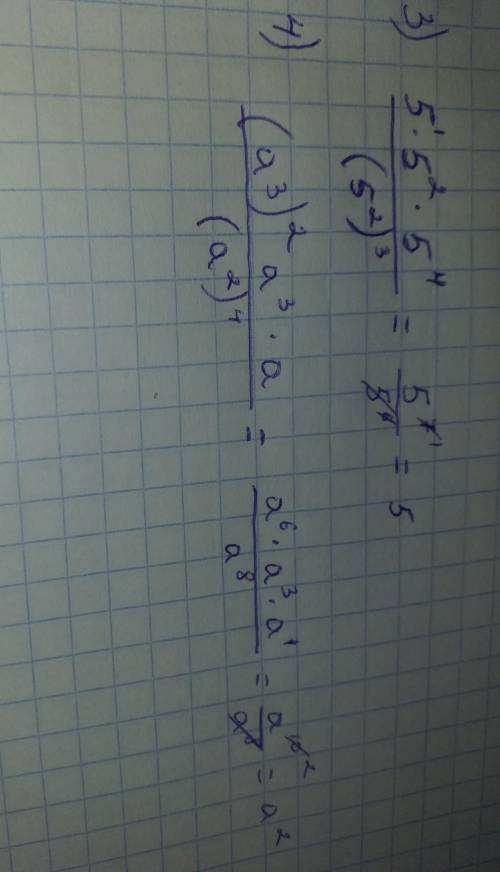 3) (5¹ · 5² · 5⁴) / (5²)³ = 5⁷ ¹ / 5⁶ = 5
4) ((a³)² a³ · a) / (a²)⁴ = (a⁶ · a³ · a¹) / a⁸ = a¹⁰ ² / a⁸ = a²